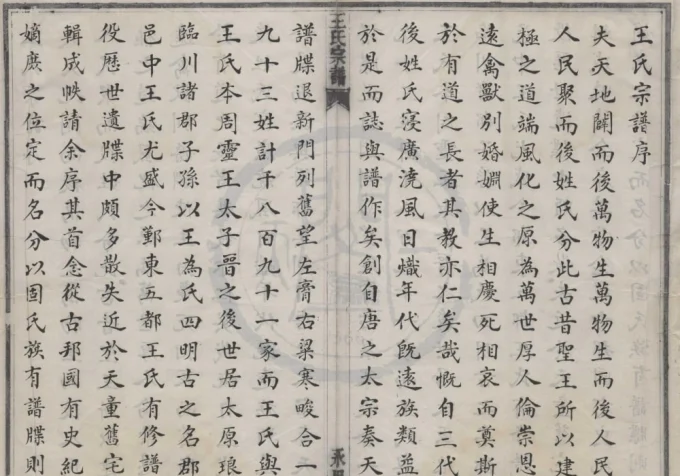 王氏宗譜序
夫天地闢而後萬物生萬物生而後人民
人民聚而後姓氏分此古昔聖王所以建
極之道端風化之原為萬世厚人倫崇恩
遠禽獸別婚婣使生相慶死相哀而奠斯
於有道之長者其教亦仁矣哉慨自三代
後姓氏寖廣澆風日熾年代旣遠族類益
於是而誌與譜作矣創自唐之太宗奏天
王氏宗譜
譜牒退新門列舊望左膏右梁寒畯合一
九十三姓計千八百九十一家而王氏與
王氏本周靈王太子晉之後世居太原琅
臨川諸郡子孫以王為氏四明古之名郡
邑中王氏尤盛今鄞東五都王氏有修譜
役歷世遺牒中頗多散失近於天童舊宅
輯成帙請余序其首念從古邦國有史紀
嫡庶之位定而名分以固氏族有譜牒則